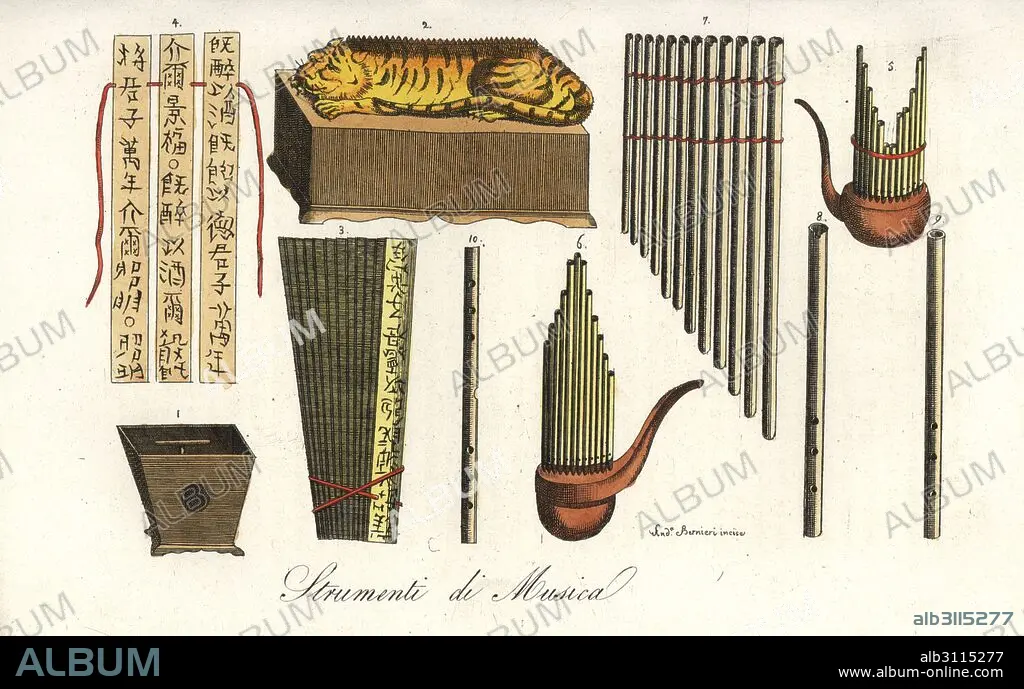 4.
2.
7.
5.
既醉以酒既飽以德君子萬年
介爾景福。既醉以酒爾殽
將君子萬年介爾昭明。昭明
3.
10.
6.
8.
9.
1
And.ª Bernieri incise
Strumenti di Musica
ALBUM
alb3115277
alb3115277
www.album-online.com